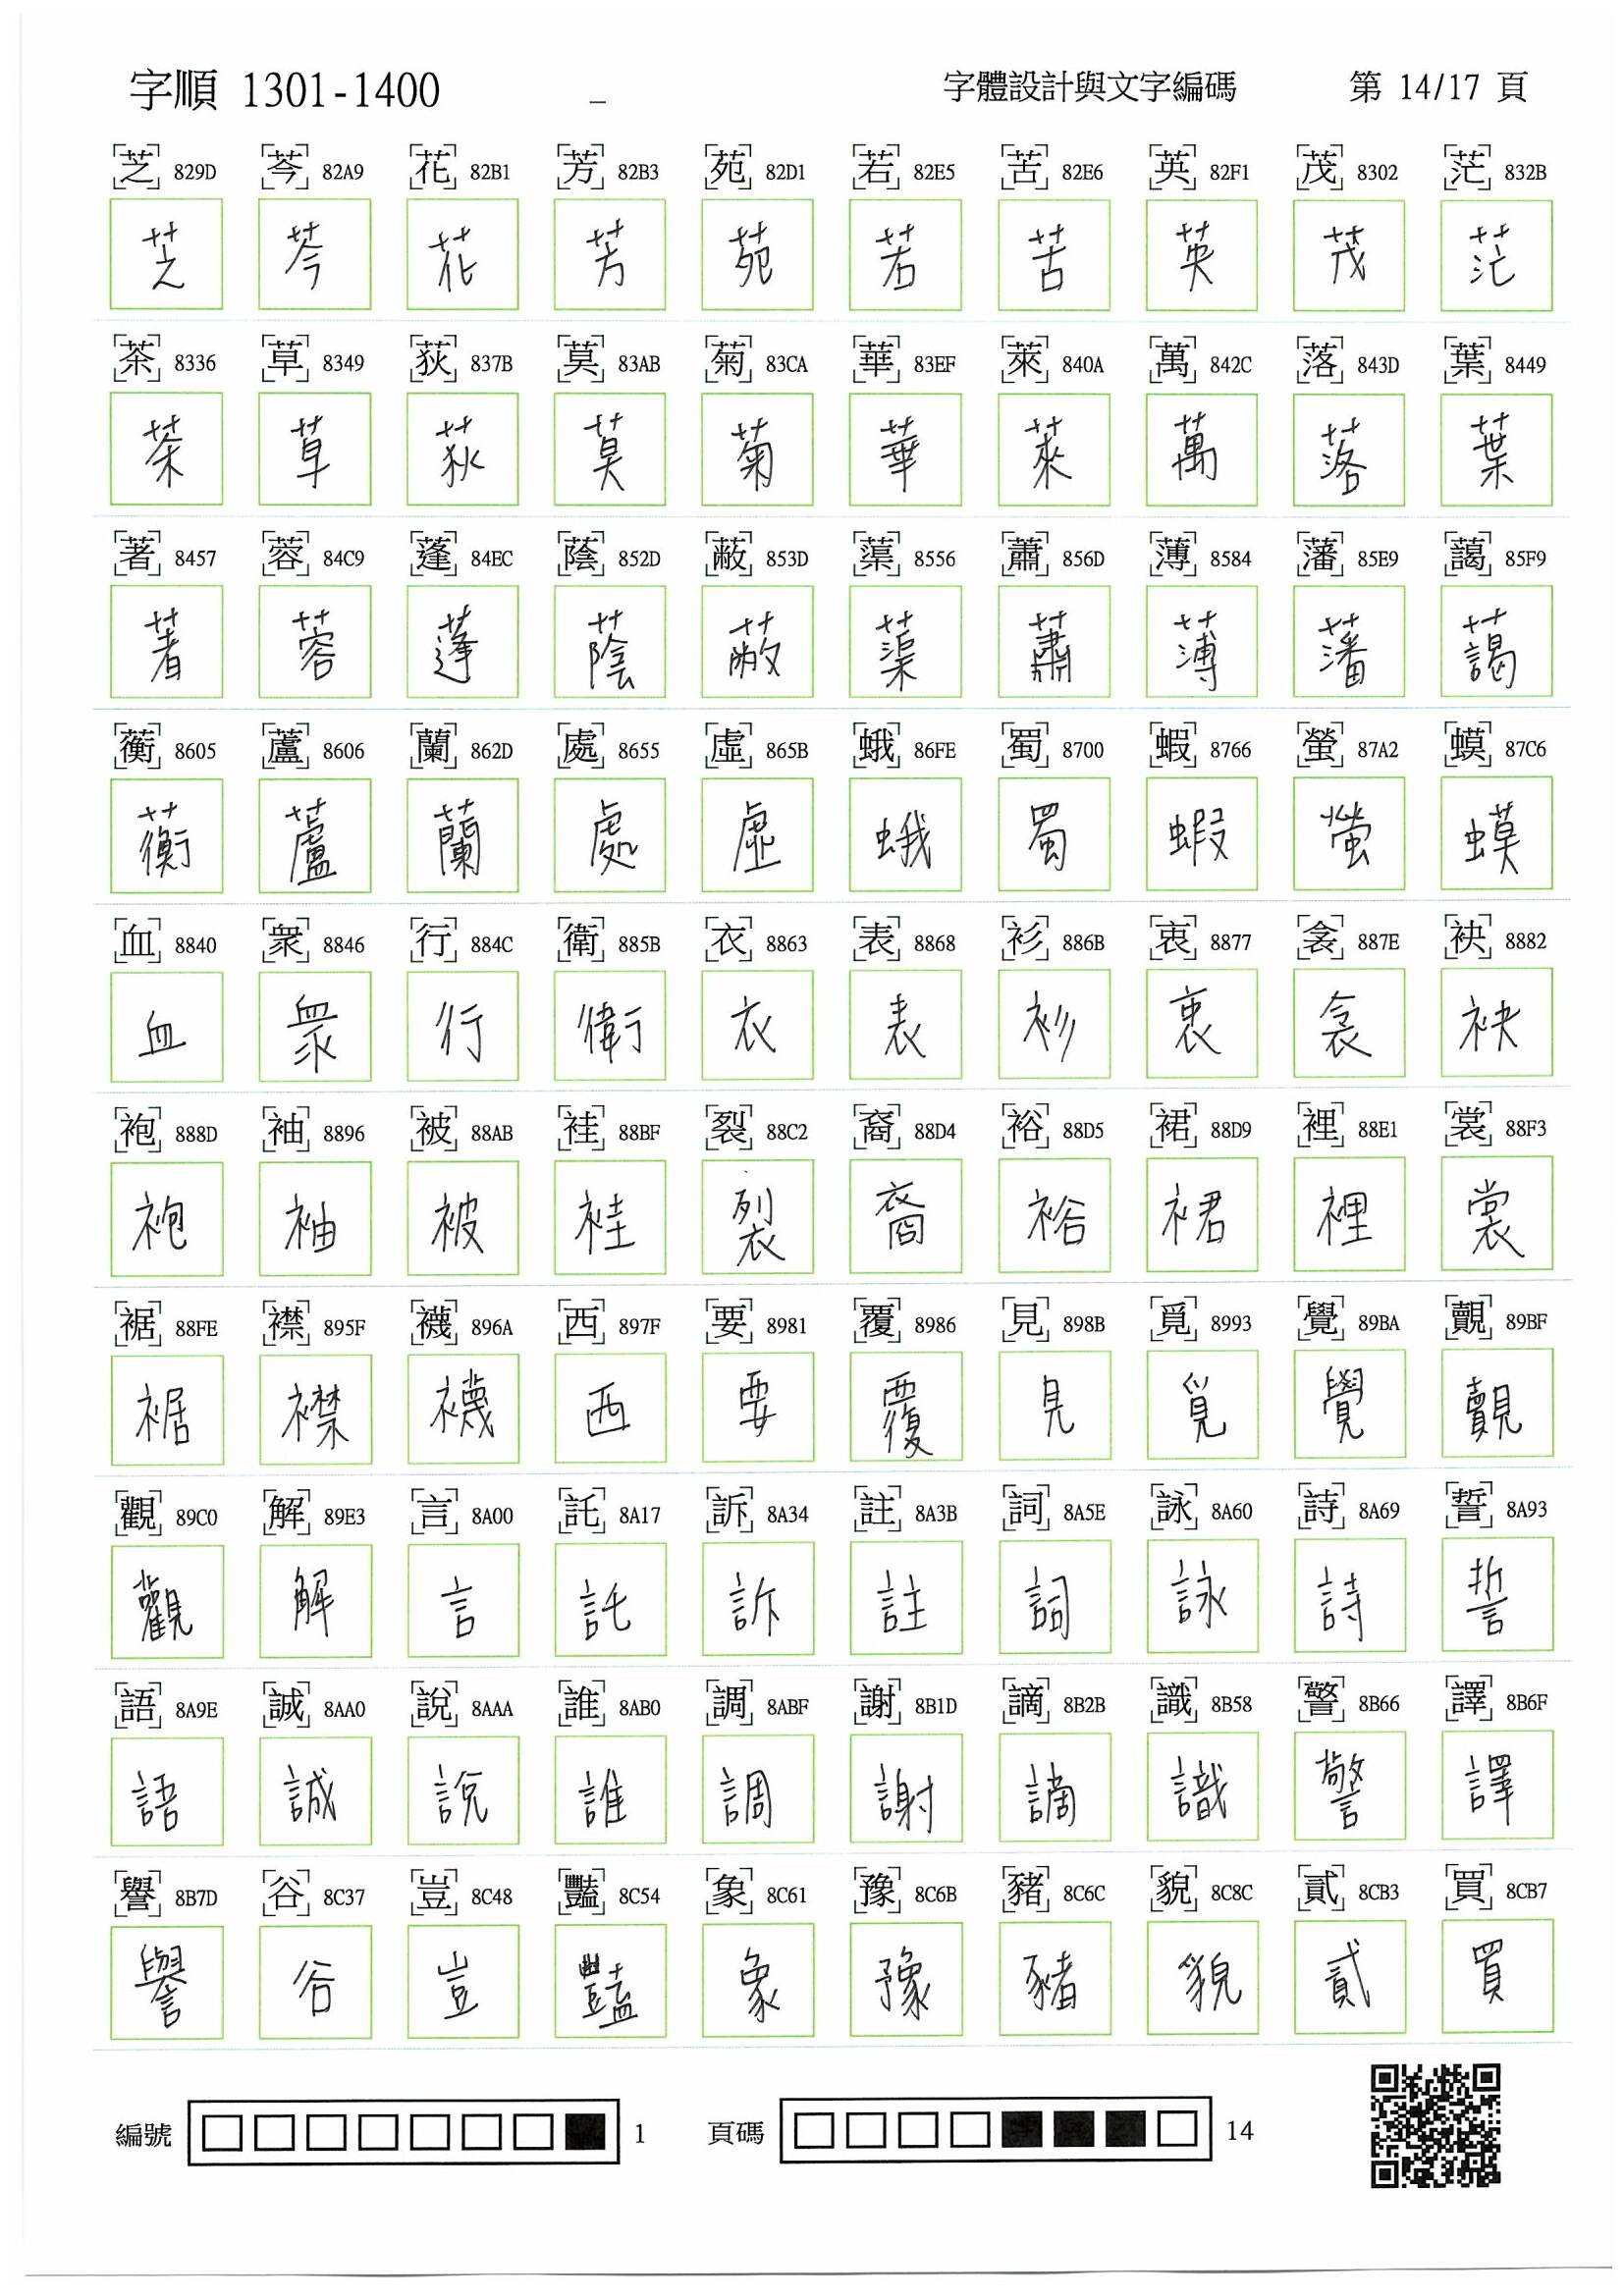 字順 1301-1400 _ 字體設計與文字編碼 第 14/17 頁
芝 829D 芩 82A9 花 82B1 芳 82B3 苑 82D1 若 82E5 苦 82E6 英 82F1 茂 8302 茫 832B
芝 芩 花 芳 苑 若 苦 英 茂 茫
茶 8336 草 8349 荻 837B 莫 83AB 菊 83CA 華 83EF 萊 840A 萬 842C 落 843D 葉 8449
茶 草 荻 莫 菊 華 萊 萬 落 葉
著 8457 蓉 84C9 蓬 84EC 蔭 852D 蔽 853D 蕖 8556 蕭 856D 薄 8584 藩 85E9 藹 85F9
著 蓉 蓬 蔭 蔽 蕖 蕭 薄 藩 藹
蘅 8605 蘆 8606 蘭 862D 處 8655 虛 865B 蛾 86FE 蜀 8700 蝦 8766 螢 87A2 蟆 87C6
蘅 蘆 蘭 處 虛 蛾 蜀 蝦 螢 蟆
血 8840 衆 8846 行 884C 衛 885B 衣 8863 表 8868 衫 886B 衷 8877 衾 887E 袂 8882
血 衆 行 衛 衣 表 衫 衷 衾 袂
袍 888D 袖 8896 被 88AB 袿 88BF 裂 88C2 裔 88D4 裕 88D5 裙 88D9 裡 88E1 裳 88F3
袍 袖 被 袿 裂 裔 裕 裙 裡 裳
裾 88FE 襟 895F 襪 896A 西 897F 要 8981 覆 8986 見 898B 覓 8993 覺 89BA 覿 89BF
裾 襟 襪 西 要 覆 見 覓 覺 覿
觀 89C0 解 89E3 言 8A00 託 8A17 訴 8A34 註 8A3B 詞 8A5E 詠 8A60 詩 8A69 誓 8A93
觀 解 言 託 訴 註 詞 詠 詩 誓
語 8A9E 誠 8AA0 說 8AAA 誰 8AB0 調 8ABF 謝 8B1D 謫 8B2B 識 8B58 警 8B66 譯 8B6F
語 誠 說 誰 調 謝 謫 識 警 譯
譽 8B7D 谷 8C37 豈 8C48 豔 8C54 象 8C61 豫 8C6B 豬 8C6C 貌 8C8C 貳 8CB3 買 8CB7
譽 谷 豈 豔 象 豫 豬 貌 貳 買
編號 1 頁碼 14